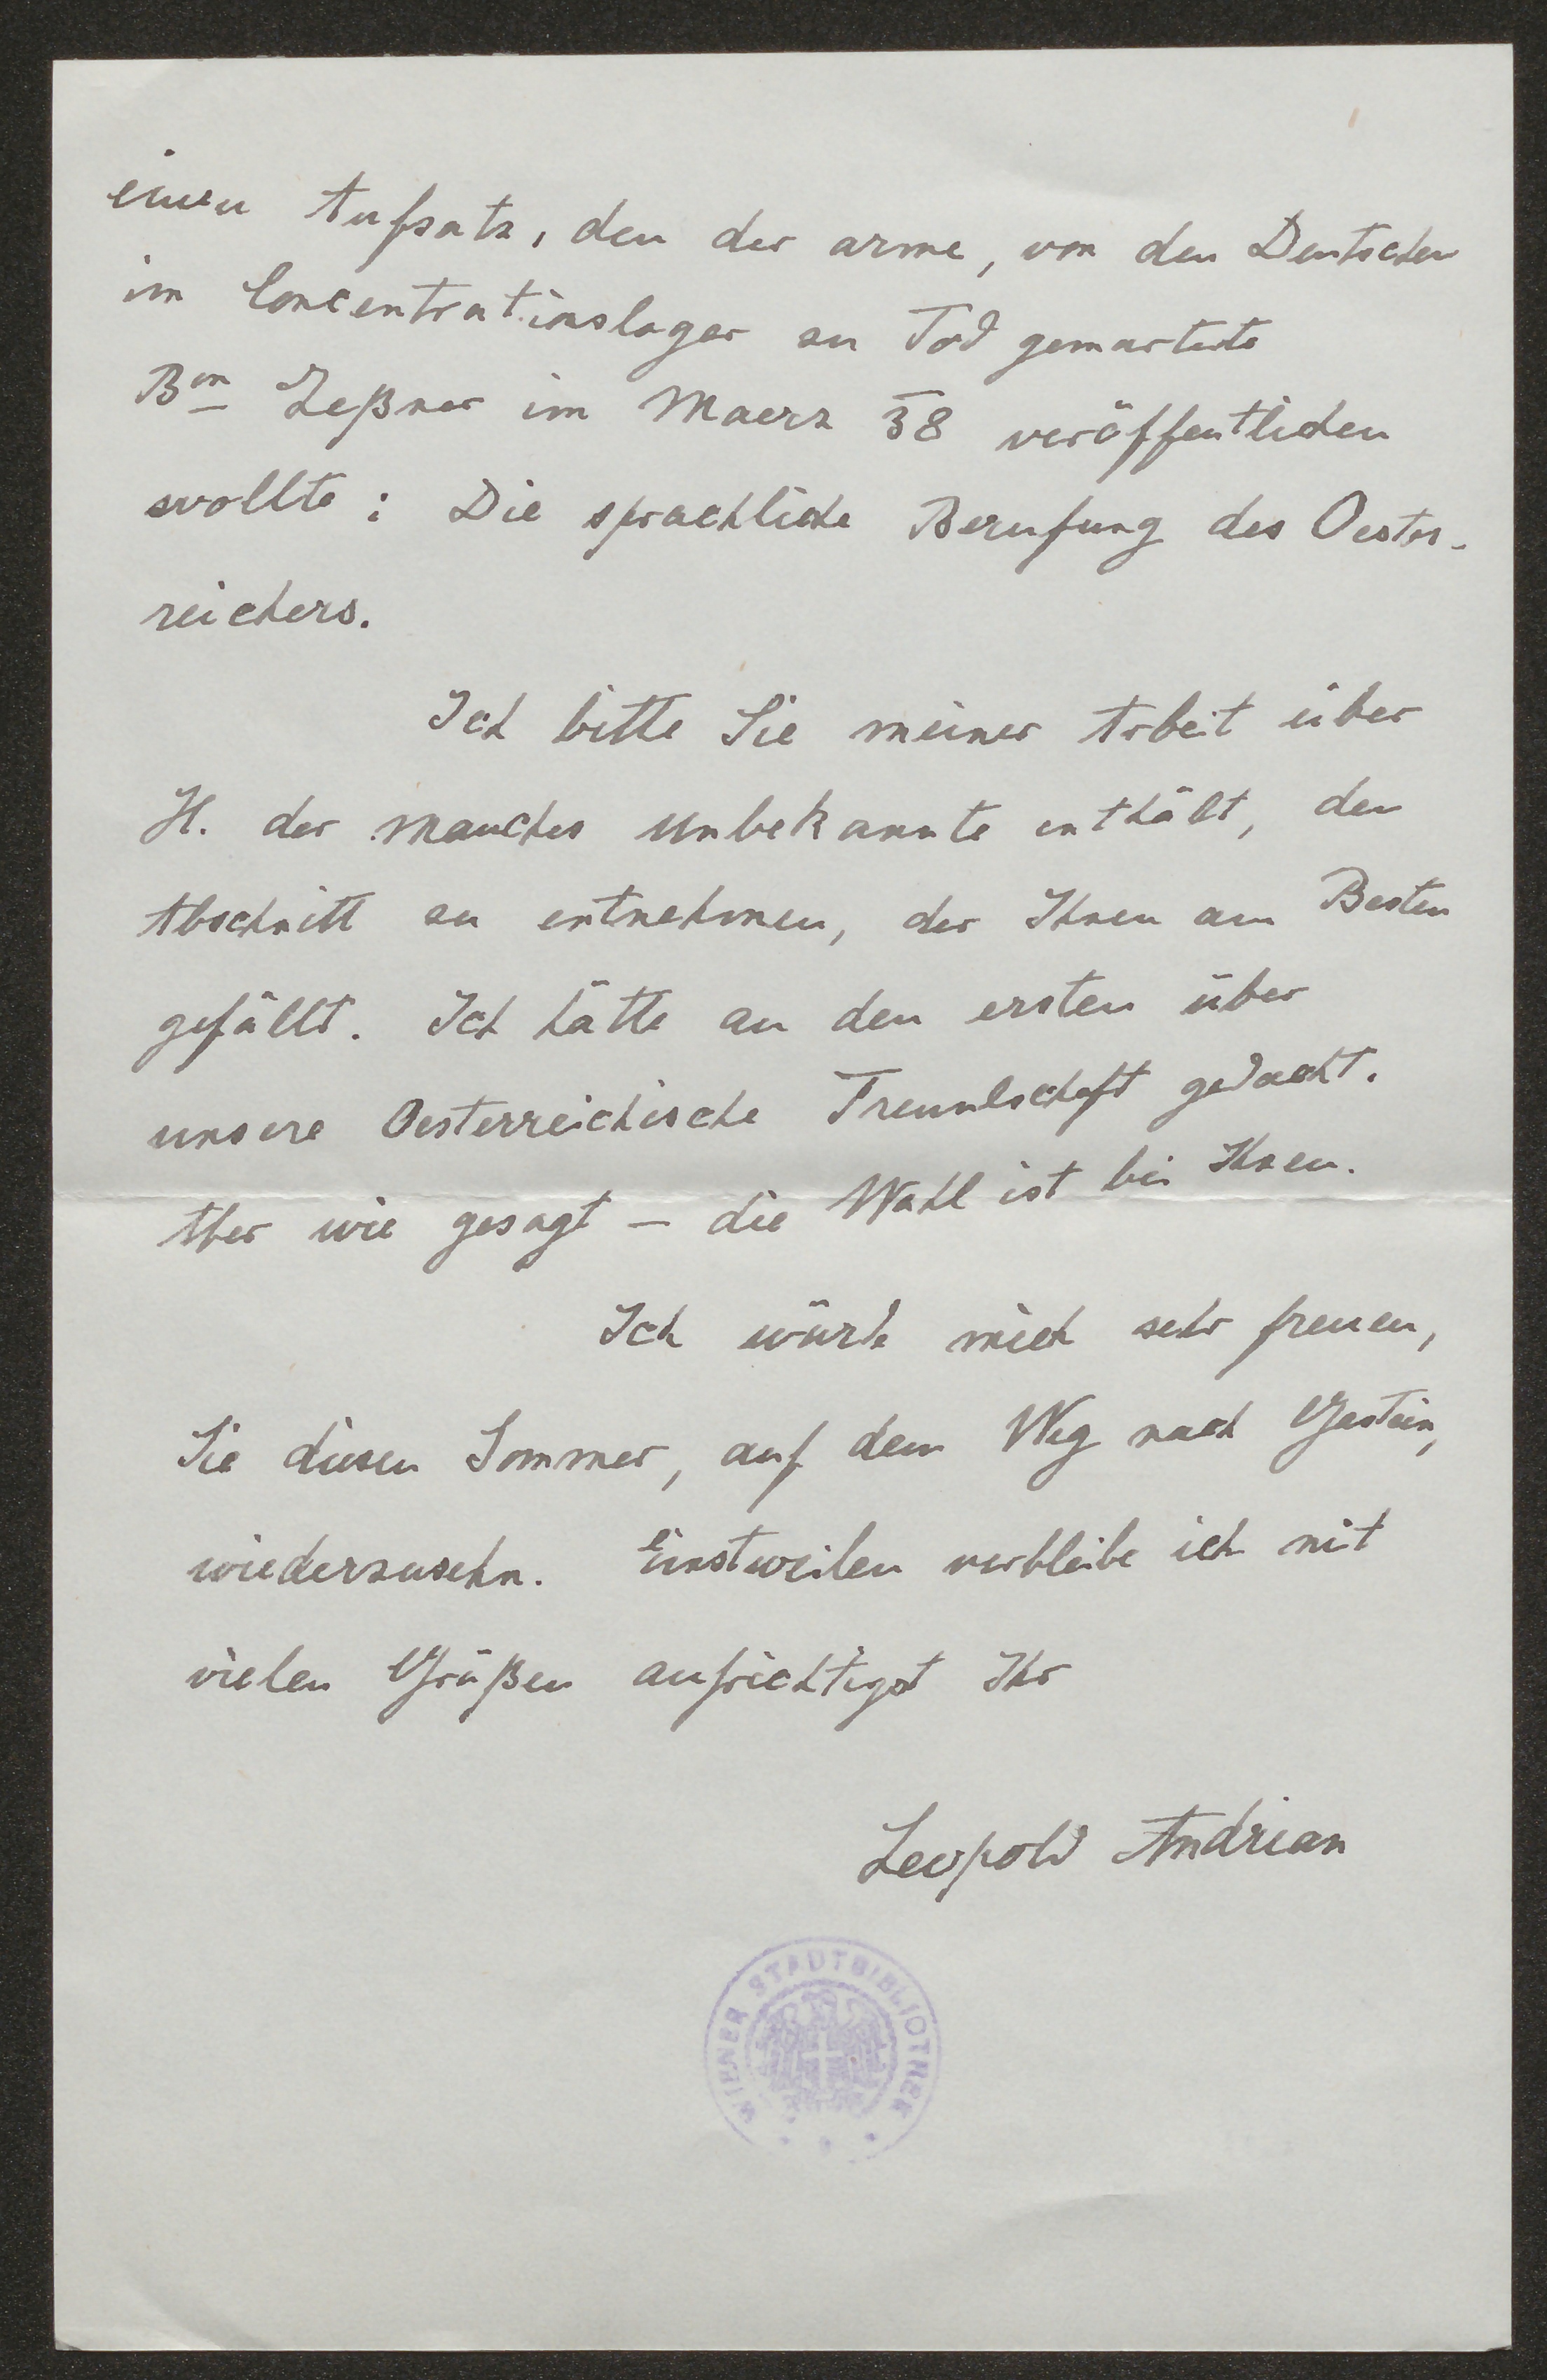 einen Aufsatz, den der arme, von den Deutschen
im Concentrationslager zu Tod gemarterte
Bon Zeßner im Maerz 38 veröffentlichen
wollte: Die sprachliche Berufung des Oester-
reichers.
Ich bitte Sie meiner Arbeit über
H. der manches Unbekannte enthält, den
Abschnitt zu entnehmen, der Ihnen am Besten
gefällt. Ich hätte an den ersten über
unsere Oesterreichische Freundschaft gedacht.
Aber wie gesagt – die Wahl ist bei Ihnen.
Ich würde mich sehr freuen,
Sie diesen Sommer, auf dem Weg nach Gastein,
wiederzusehn. Einstweilen verbleibe ich mit
vielen Grüßen aufrichtigst Ihr
Leopold Andrian
WIENER STADTBIBLIOTHEK